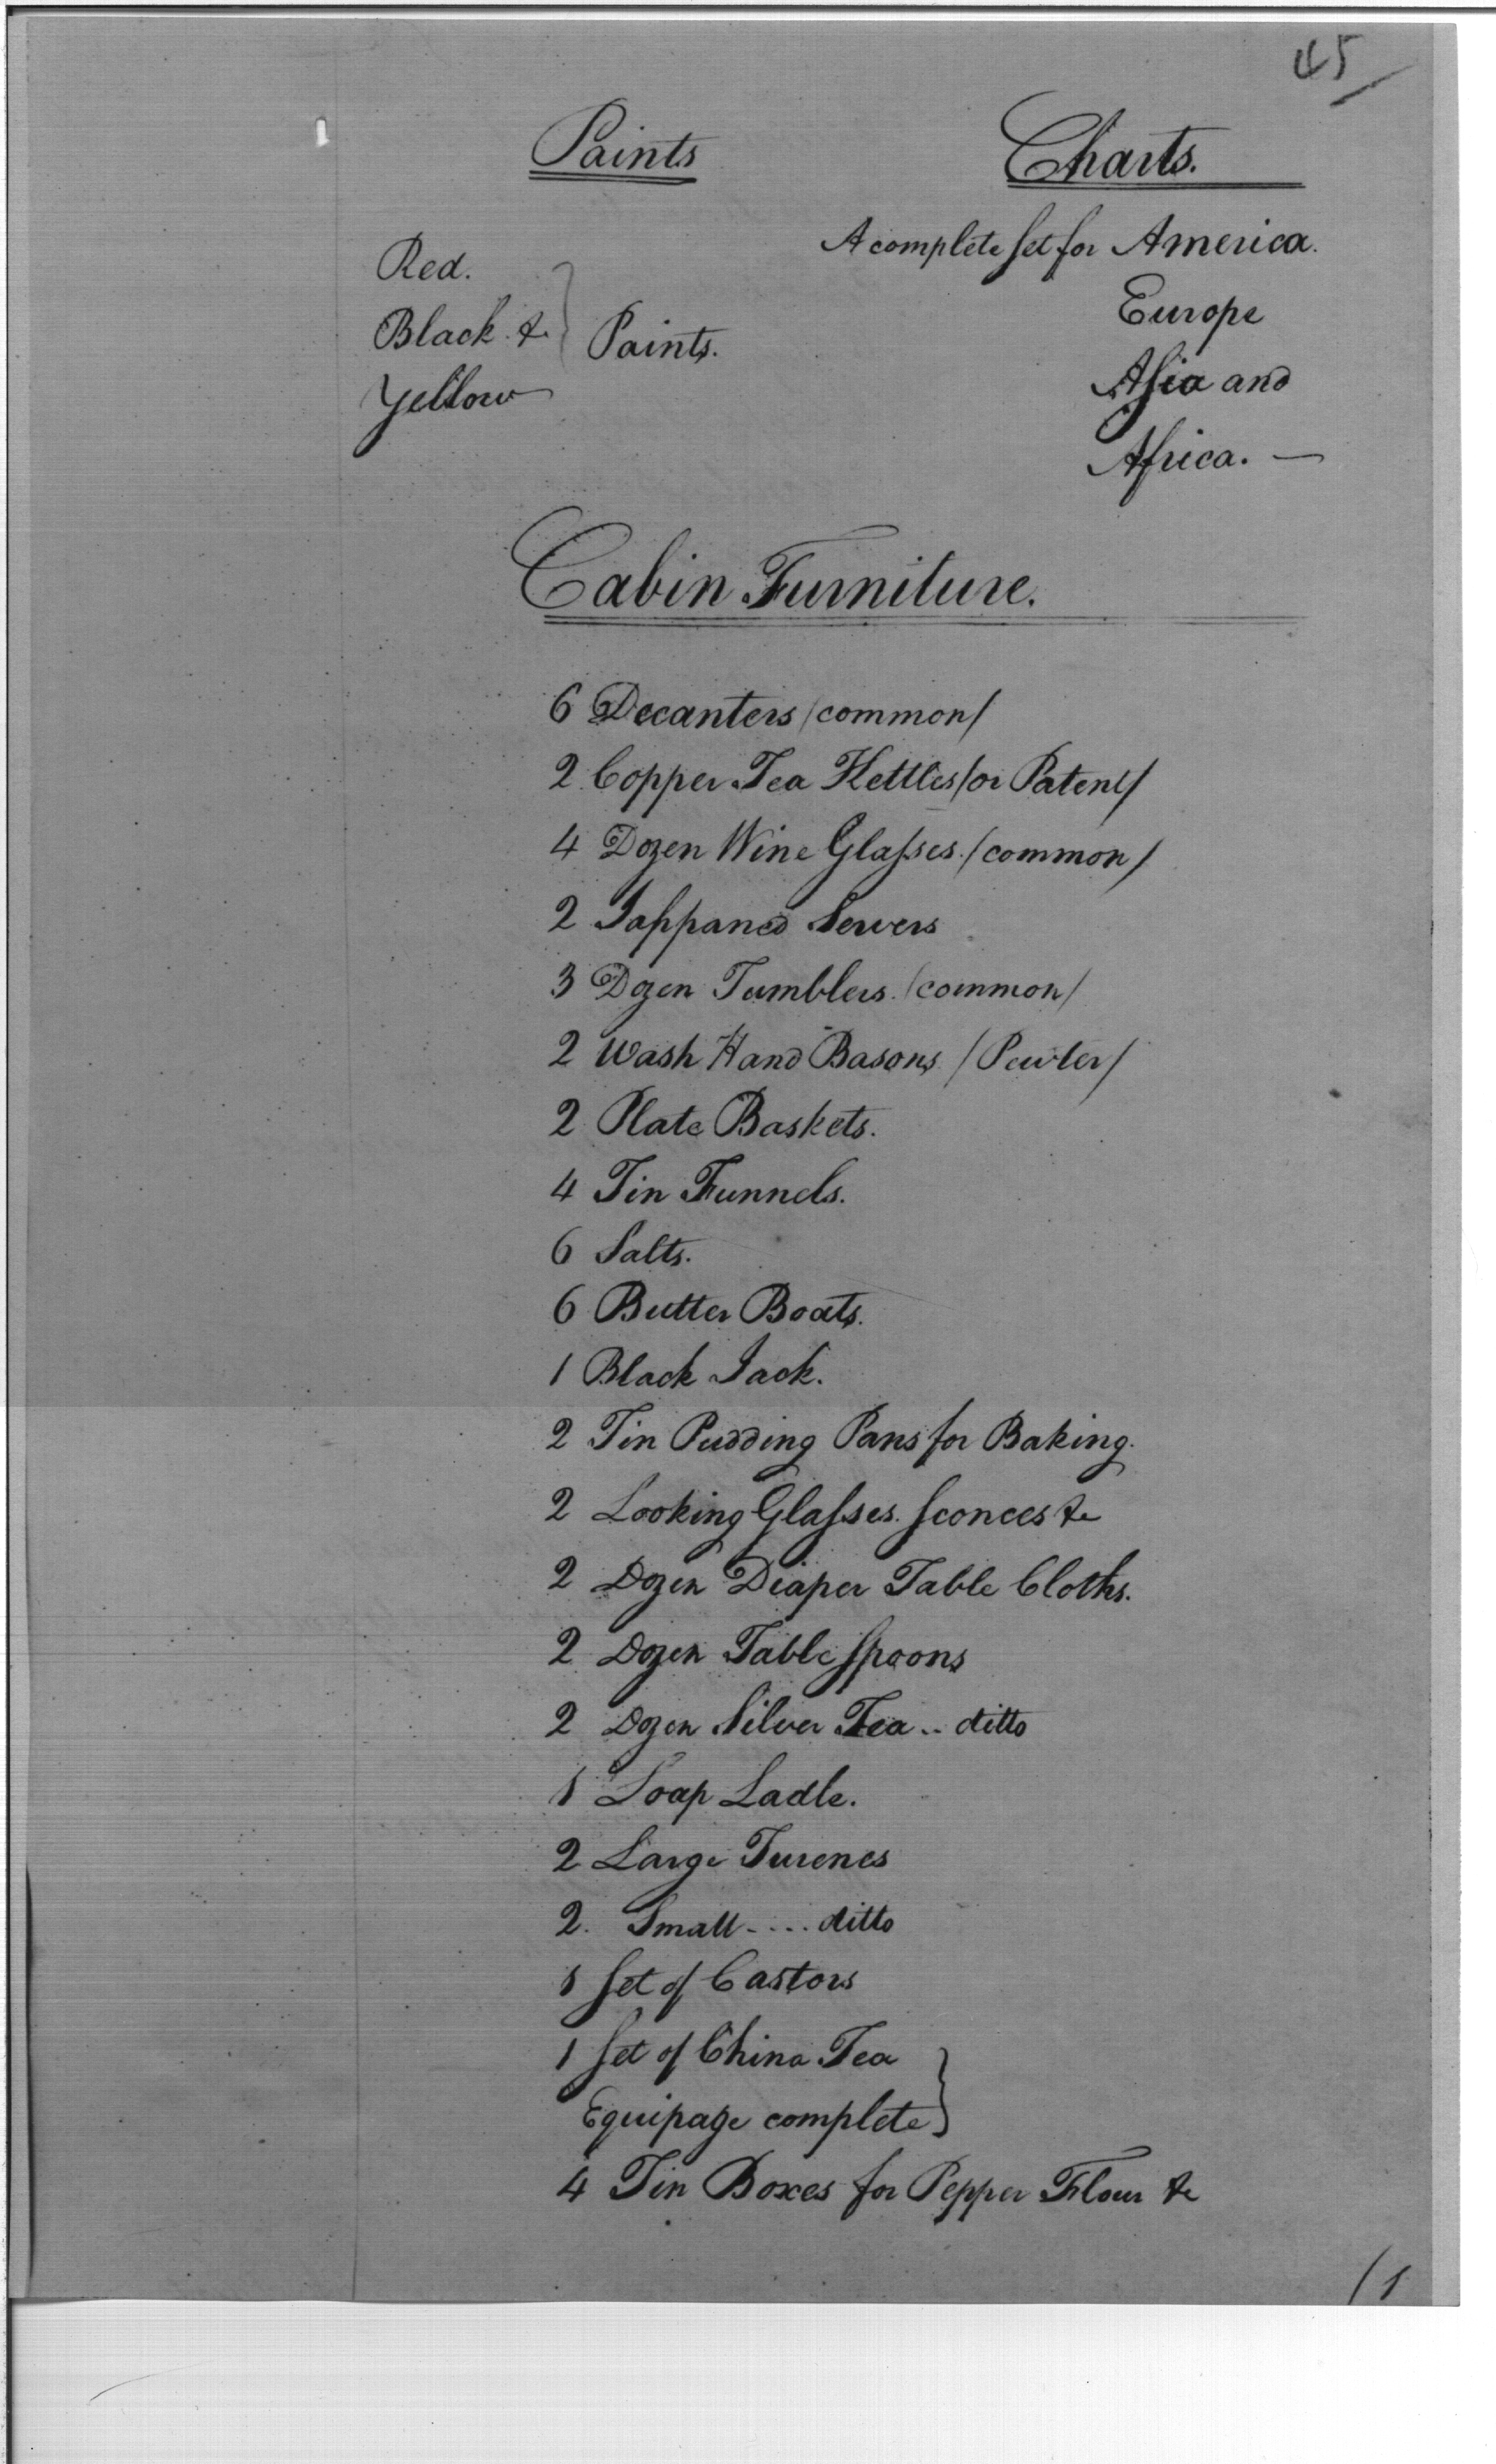 45/
Paints
Charts.
Red.
Black &
Yellow
Paints.
A complete set for America.
Europe
Asia and
Africa. —
Cabin Furniture.
6 Decanters /common/
2 Copper Tea Kettles /or Patent/
4 Dozen Wine Glasses. /common/
2 Jappaned Servers
3 Dozen Tumblers. /common/
2 Wash Hand Basons /Pewter/
2 Plate Baskets.
4 Tin Funnels.
6 Salts.
6 Butter Boats.
1 Black Jack.
2 Tin Pudding Pans for Baking.
2 Looking Glasses. Sconces &c
2 Dozen Diaper Table Cloths.
2 Dozen Table Spoons
2 Dozen Silver Tea .. ditto
1 Soap Ladle.
2 Large Turenes
2. Small - . . . ditto
1 Set of Castors
1 Set of China Tea
Equipage complete
4 Tin Boxes for Pepper Flour &c
/1